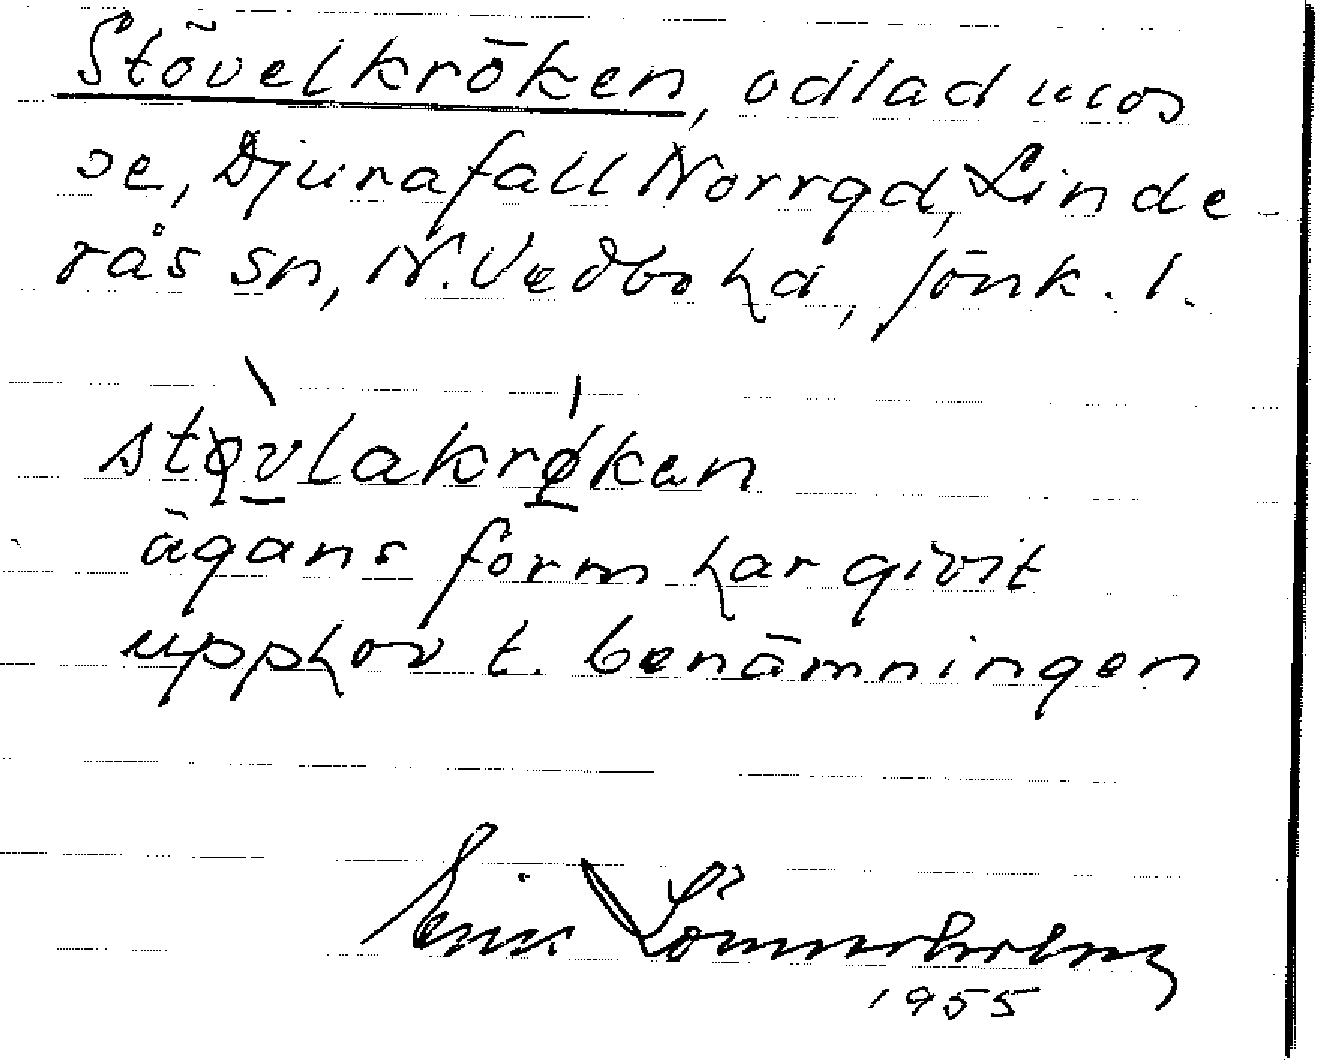 Stövelkröken, odlad mos
se, Djurafall Norrgd, Linde-
rås sn, N. Vedbo hd, Jönk. l.
støvlakrøken
ägans form har givit
upphov t. benämningen
Erik Lönnerholm
1955